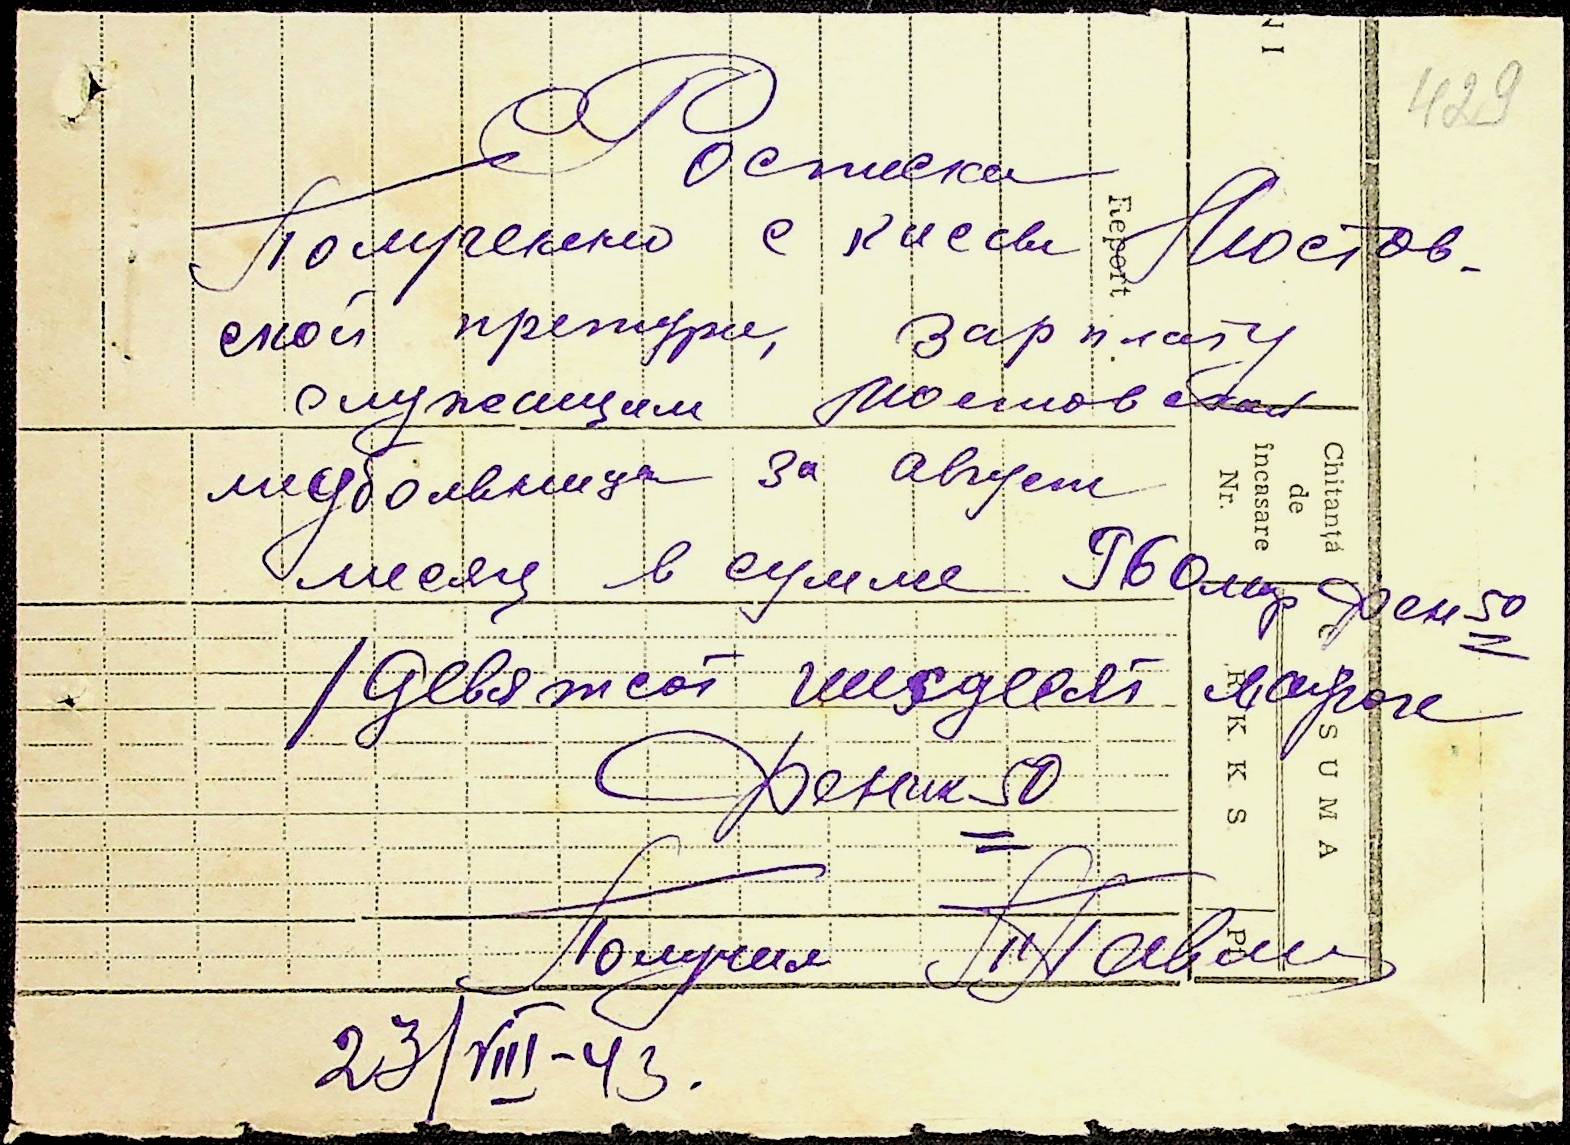 429
Росписка
Полученно с кассы Мостов-
ской претуры, зарплату
служащим Мостовской
медбольница за август
месяц в сумме 960 мар фен 50
/девятсот шездесят марок
Феник 50
Получил
23/VIII-43.
NI
Report
Chitanță
de
încasare
Nr.
SUMA
R. K. K. S
Pf.